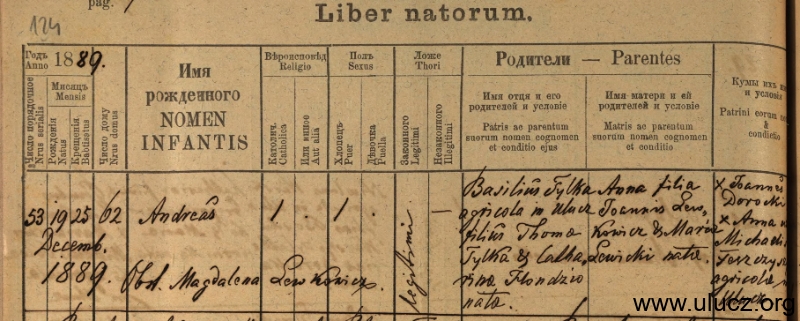 pag.
124
Liber natorum.
Годъ
Anno 1889.
Число порядочное
Nrus serialis
Мѣсяцъ
Mensis
Рожденія
Natus
Крещенія.
Babtisatus
Число дому
Nrus domus
Имя
рожденного
NOMEN
INFANTIS
Вѣроисповѣд
Religio
Католич.
Catholica
Или иное
Aut alia
Полъ
Sexus
Хлопецъ
Puer
Дѣвочка
Puella
Ложе
Thori
Законного
Legitimi
Незаконного
Illegitimi
Родители — Parentes
Имя отця и его
родителей и условіе
Patris ac parentum
suorum nomen cognomen
et conditio ejus
Имя матери и ей
родителей и условіе
Matris ac parentum
suorum nomen cognomen
et conditio
Кумы ихъ
и условія
Patrini eorum
&
conditio
53 19 25 62 Andreas 1 . 1 . legitimi —
Decemb.
1889. Obst. Magdalena Lewkowicz
Basilius Fylka
agricola in Ulucz
filius Thomae
Fylka & Catha,
rinae Flondzio
natae.
Anna filia
Joannis Lew,
kowicz & Maria
Lewicki natae.
x Joannes
Dorocki
x Anna
Michaeli
agricola
Ulucz
www.ulucz.org